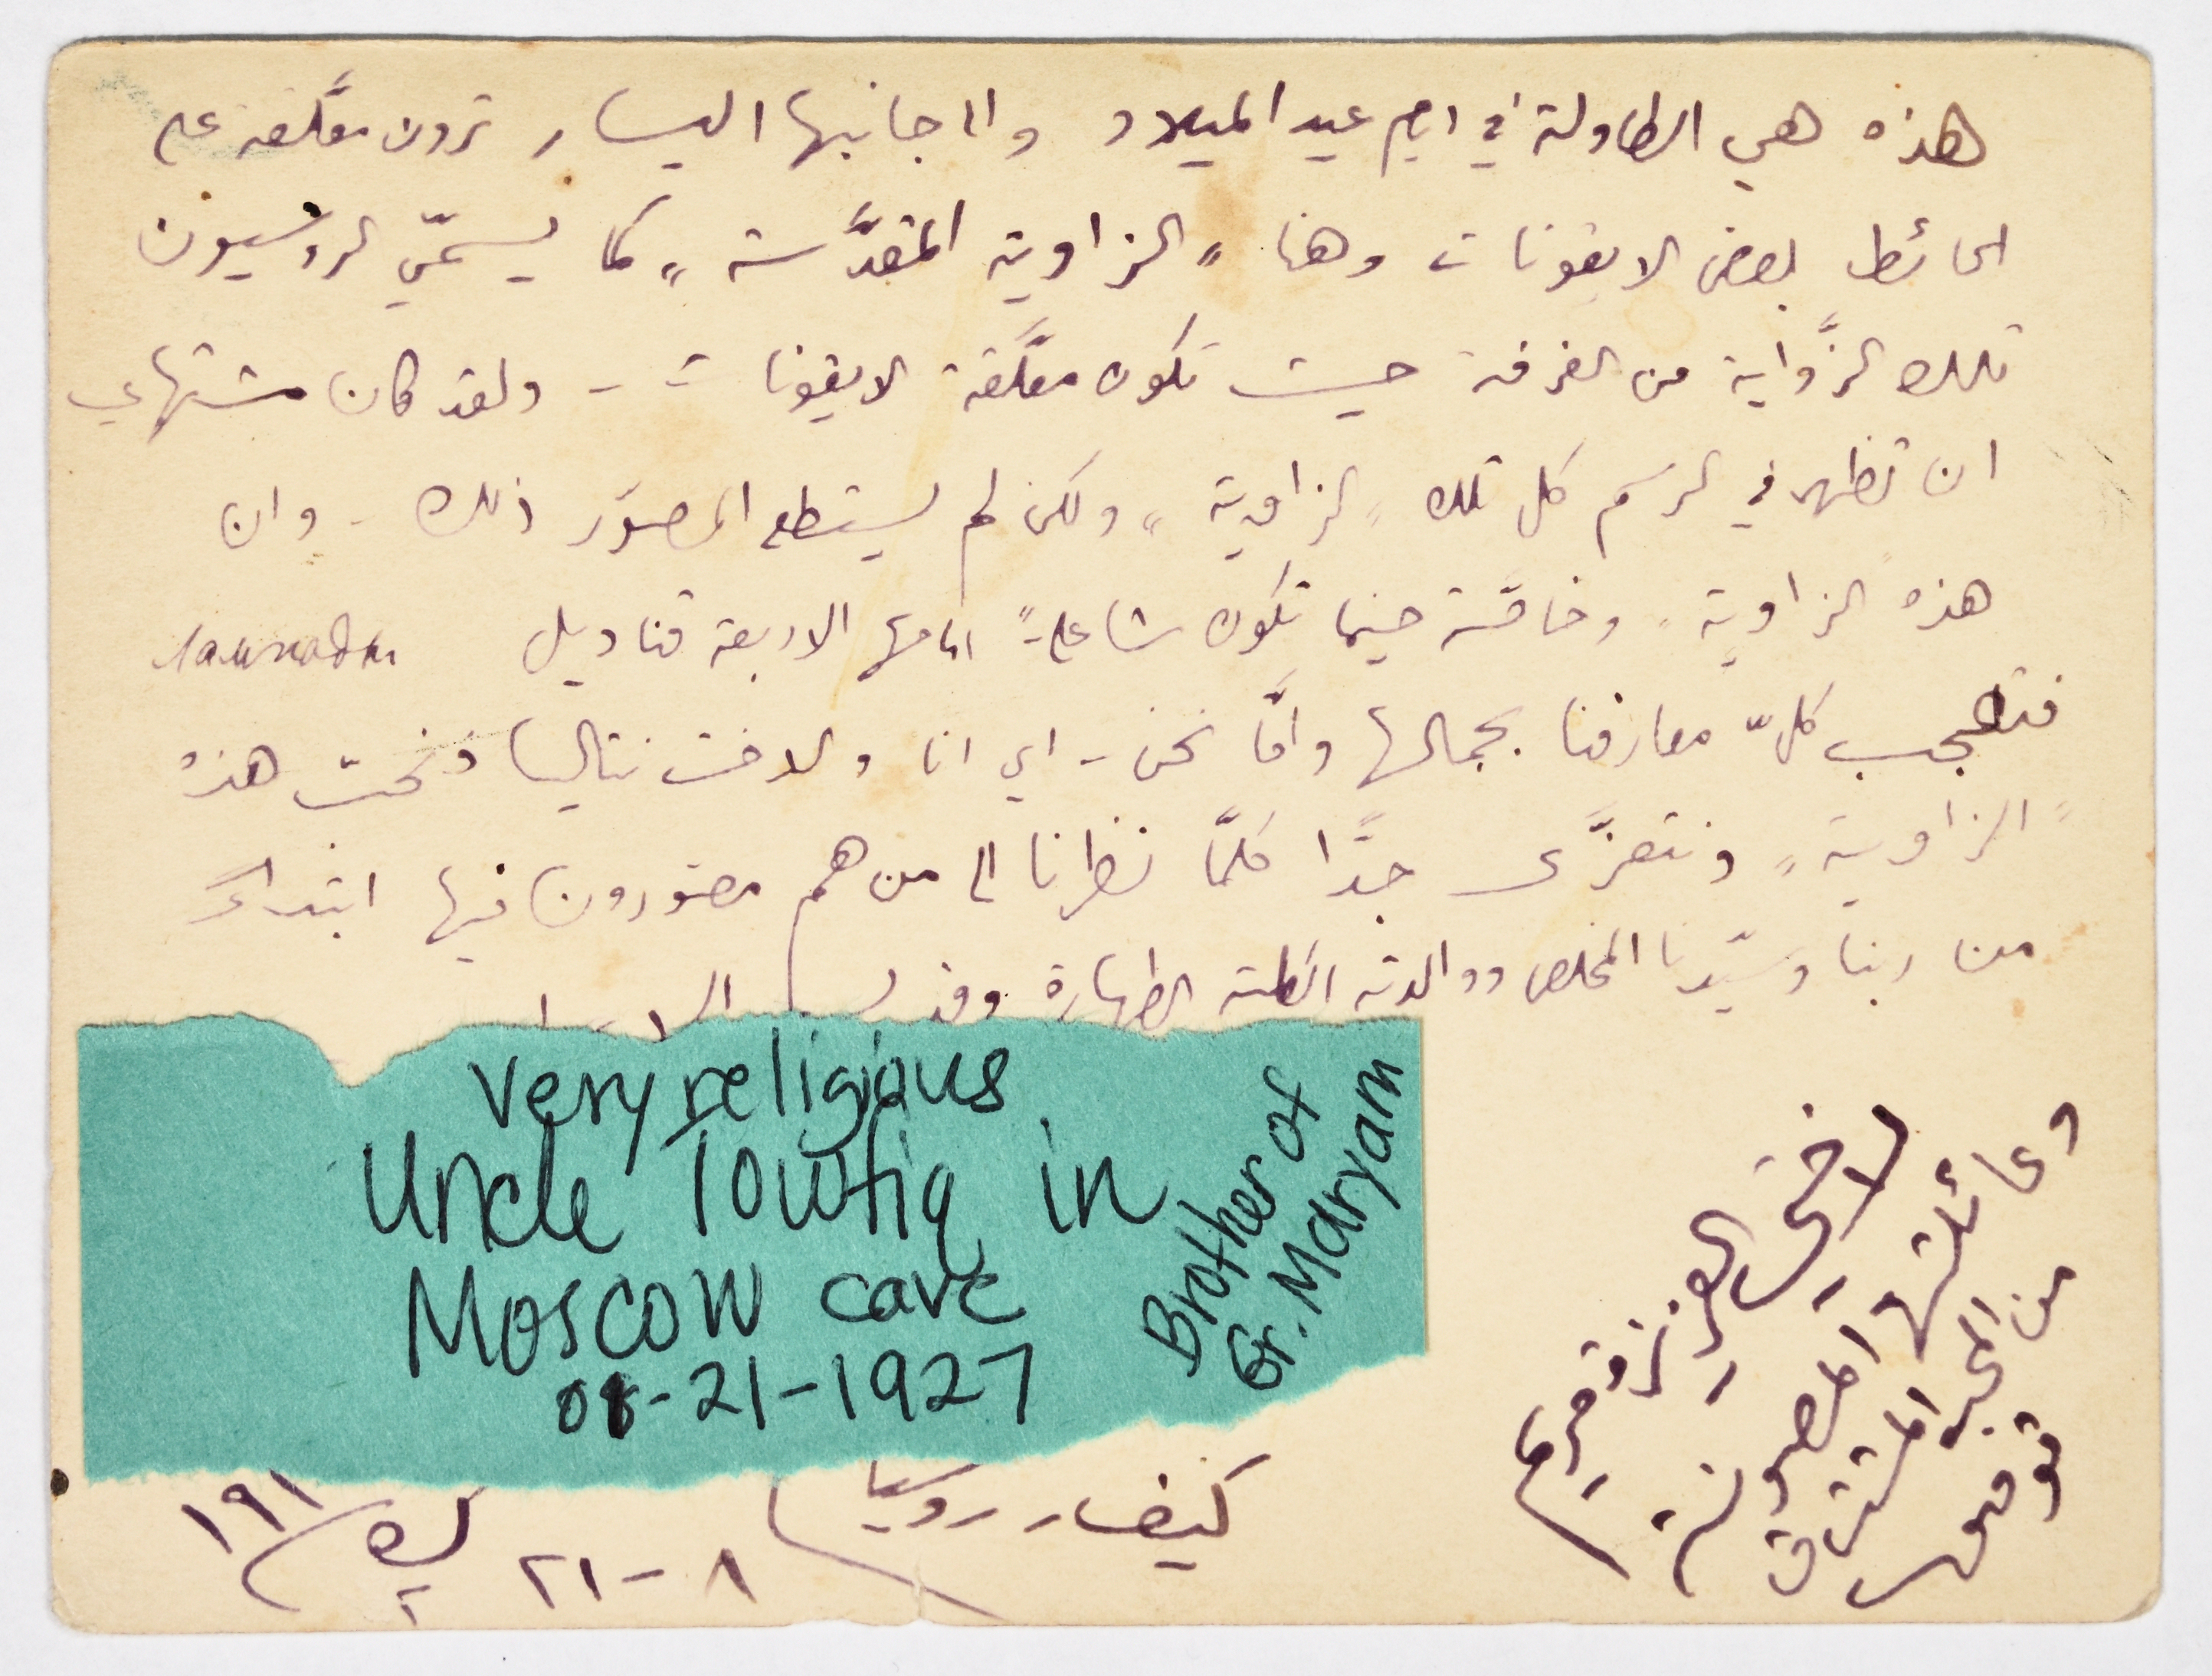 هذه هي الطاولة في ايام عيد الميلاد والى جانبها اليسار ترون معلَّقة على
الحائط بعض الايقونات وهنا "الزاوية المقدَّسة" كما يسمّي الروسيون
تلك الزَّواية من الغرفة حيث تكون معلَّقة الايقونات - ولقد كان مشتهاي
ان تظهر في الرسم كل تلك "الزاوية" ولكن لم يستطع المصوّر ذلك - وان
هذه الزاوية وخاصّة حينما تكون شاعلةً امامها الاربعة قناديل
فتعجب كلّ معارفنا بجمالها وامَّا نحن - اي انا والاخت نتاليا فنحب هذه
"الزاوية" ونتعزَّى جدًّا كلمَّا نظرنا الى من هم مصورون فيها ابتداءً
من ربنا وسيّدنا المخلص ووالدته الكلية الطهارة
very religious
Uncle Towfiq in
Moscow cave
08-21-1927
Brother of
Gr. Maryam
لاختي العزيزة مريم
وعائلتها المصونة
من المحب المشتاق
توفيق
كييف روسيا
٢١-٨ ١٩١